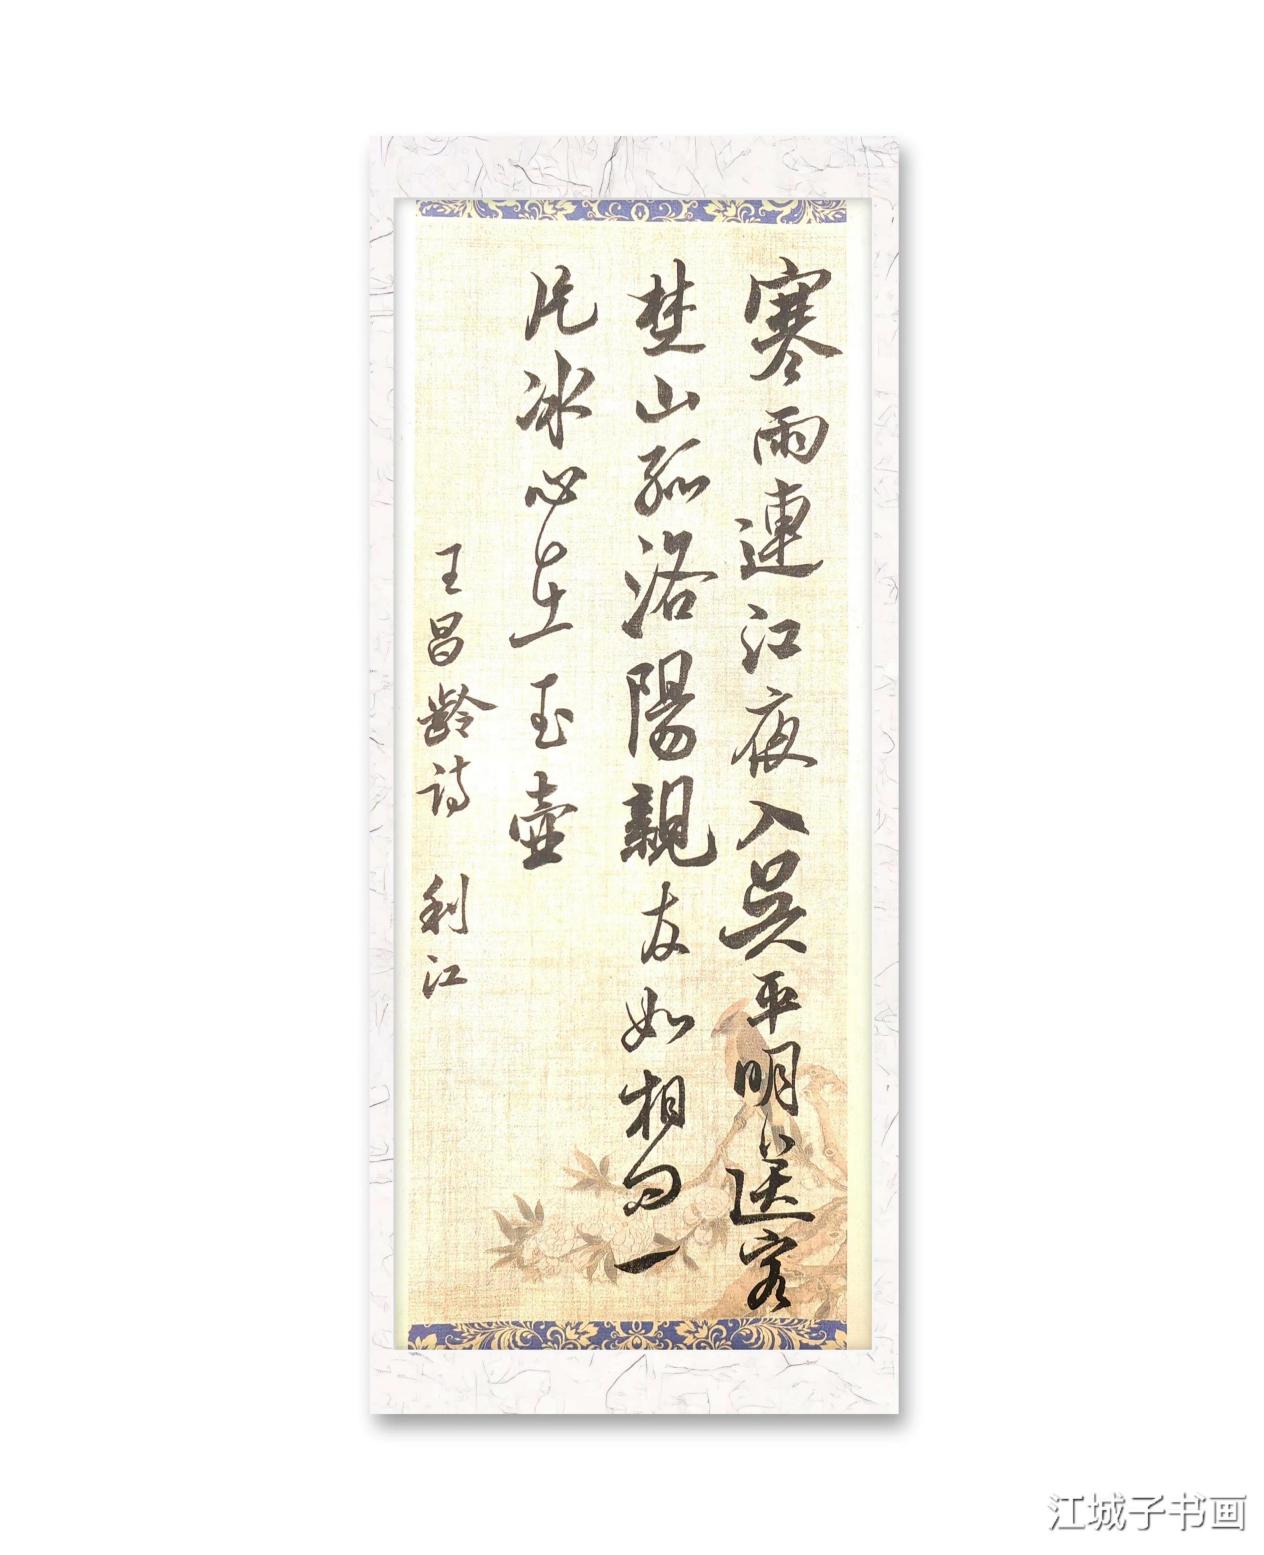 寒雨連江夜入吴平明送客
楚山孤洛陽親友如相问一
片冰心在玉壶
王昌龄诗 利江
江城子书画